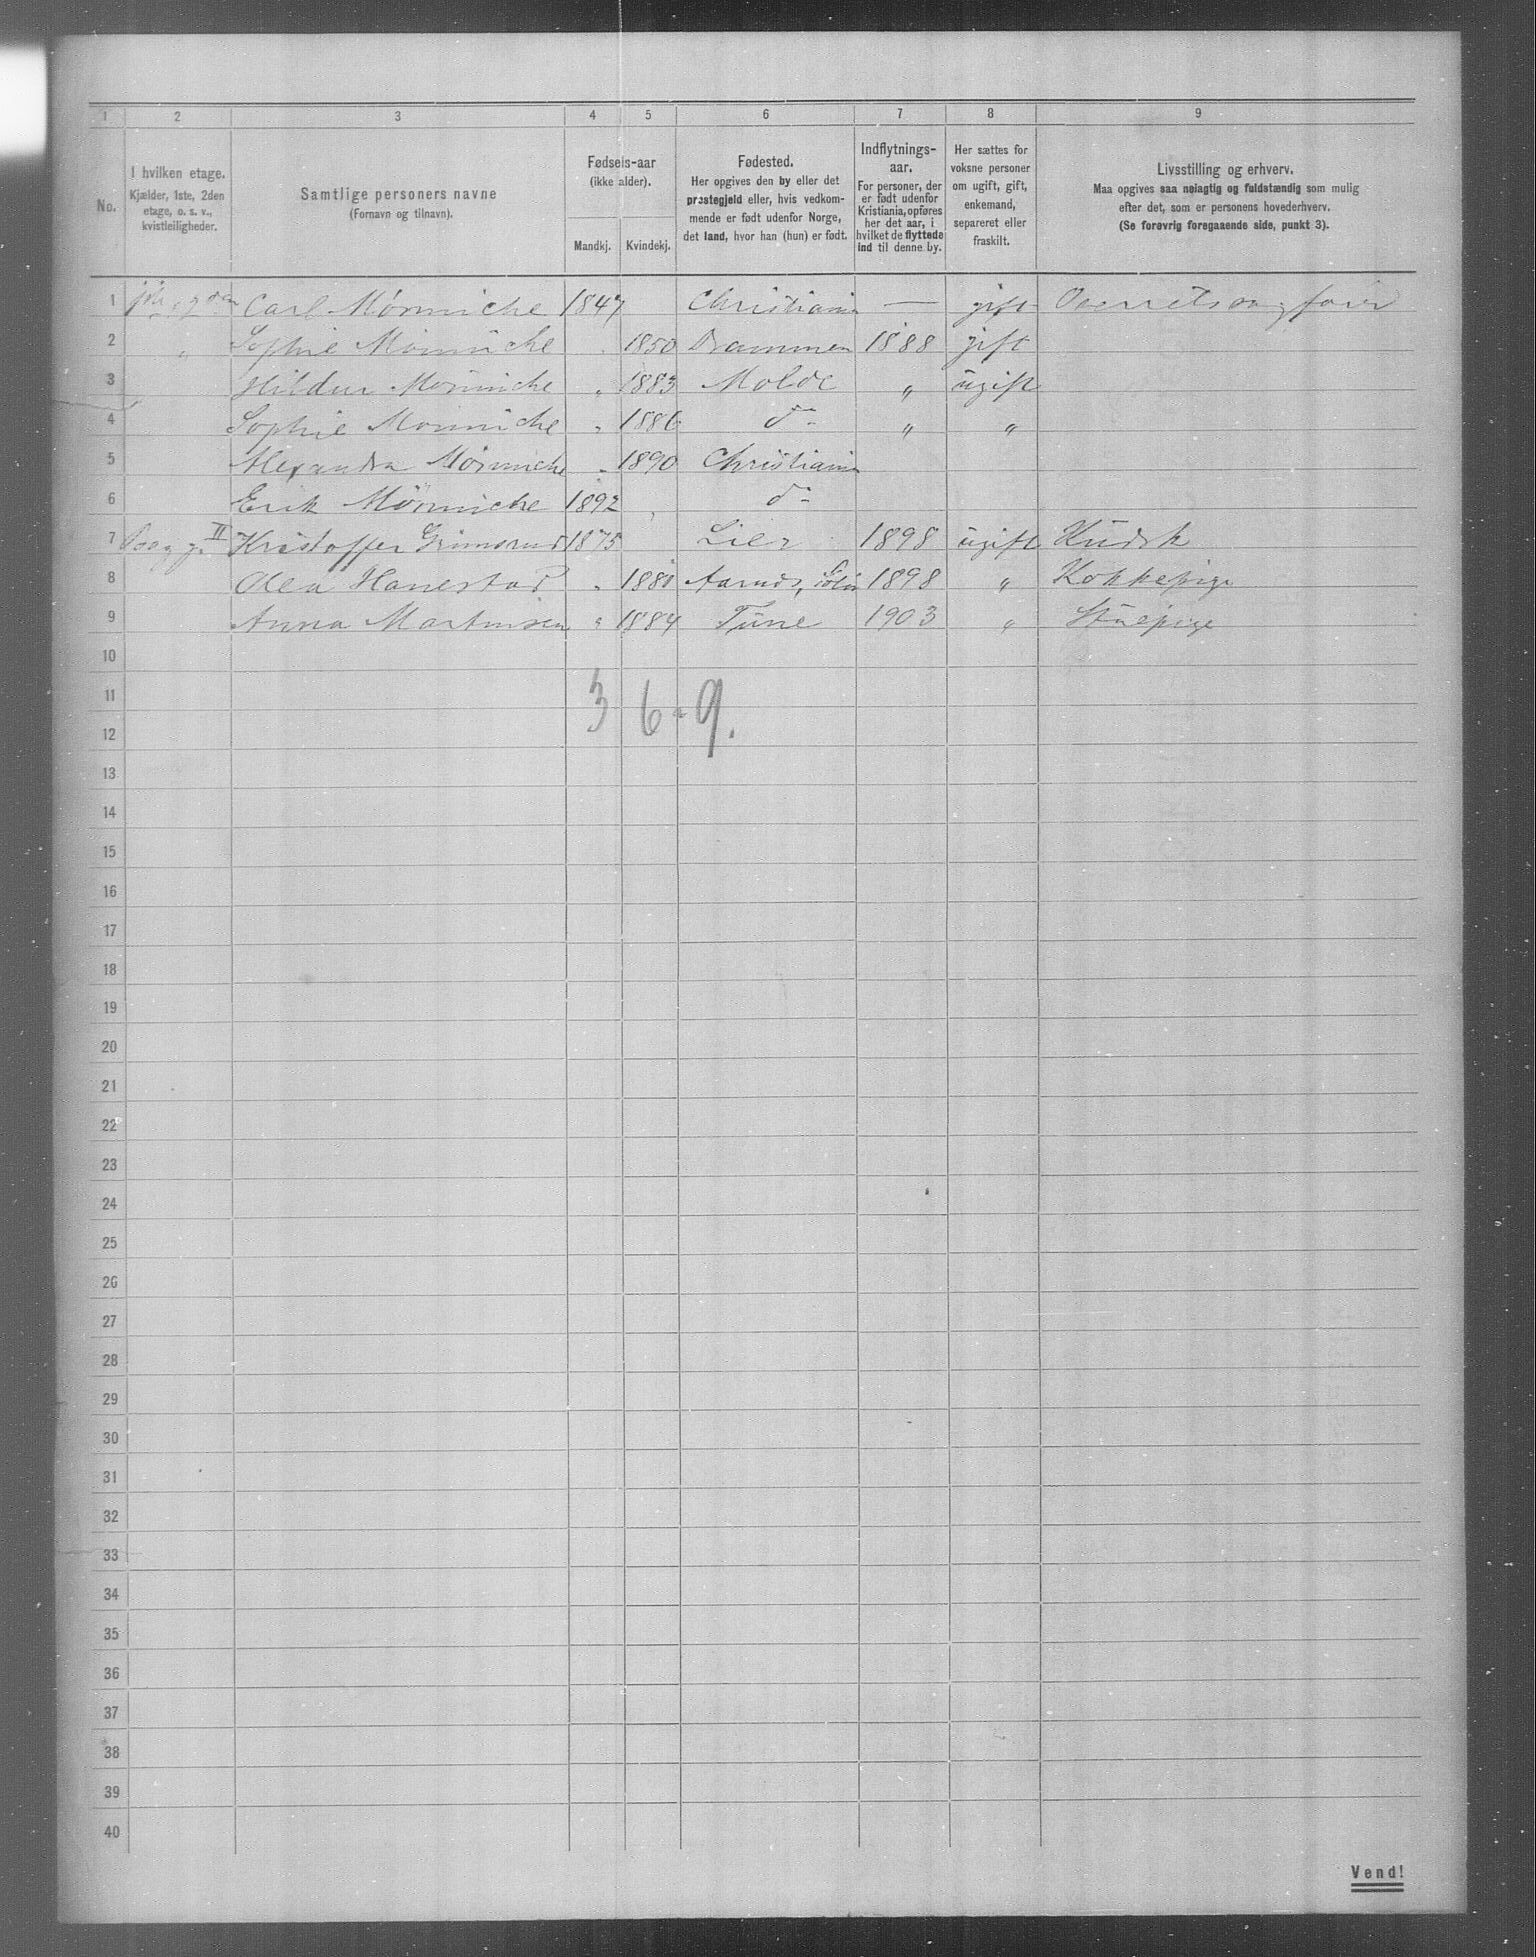 1 2 3 4 5 6 7 8 9
No.
I hvilken etage.
Kjælder, 1ste, 2den
etage, o. s. v.,
kvistleiligheder.
Samtlige personers navne
(Fornavn og tilnavn).
Fødsels-aar
(ikke alder).
Mandkj. Kvindekj.
Fødested.
Her opgives den by eller det
præstegjeld eller, hvis vedkom-
mende er født udenfor Norge,
det land, hvor han (hun) er født.
Indflytnings-
aar.
For personer, der
er født udenfor
Kristiania, opføres
her det aar, i
hvilket de flyttede
ind til denne by.
Her sættes for
voksne personer
om ugift, gift,
enkemand,
separeret eller
fraskilt.
Livsstilling og erhverv.
Maa opgives saa nøiagtig og fuldstændig som mulig
efter det, som er personens hovederhverv.
(Se forøvrig foregaaende side, punkt 3).
1 Carl Mørmiche 1847 Christiania — gift Overretssagfører
2 " Sophie Mørmiche " 1850 Drammen 1888 gift
3 Hildur Mørmiche " 1883 Molde " ugift
4 Sophie Mørmiche " 1886 do " "
5 Alexandra Mørmiche " 1890 Christiania
6 Erik Mørmiche 1892 " do
7 II Kristoffer Grimsrud 1875 Lier 1898 ugift Kudsk
8 Olea Hanestad " 1880 Aasnes, Solør 1898 " Kokkepige
9 Anna Martinsen " 1884 Tune 1903 " Stuepige
10
11 3 6 - 9.
12
13
14
15
16
17
18
19
20
21
22
23
24
25
26
27
28
29
30
31
32
33
34
35
36
37
38
39
40
Vend!